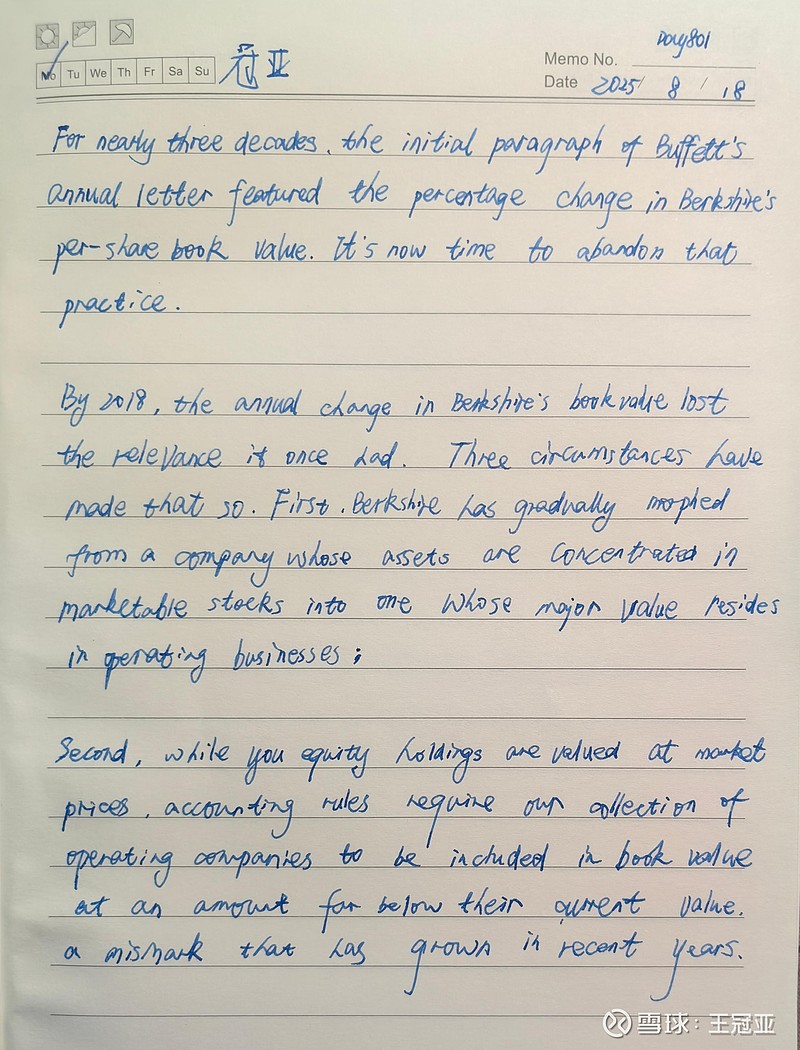 Day801
Mo Tu We Th Fr Sa Su 冠亚
Memo No.
Date 2025/ 8 / 18
For nearly three decades, the initial paragraph of Buffett's
annual letter featured the percentage change in Berkshire's
per-share book value. It's now time to abandon that
practice.
By 2018, the annual change in Berkshire's book value lost
the relevance it once had. Three circumstances have
made that so. First, Berkshire has gradually morphed
from a company whose assets are concentrated in
marketable stocks into one whose major value resides
in operating businesses;
Second, while you equity holdings are valued at market
prices, accounting rules require our collection of
operating companies to be included in book value
at an amount far below their current value.
a mismark that has grown in recent years.
雪球:王冠亚